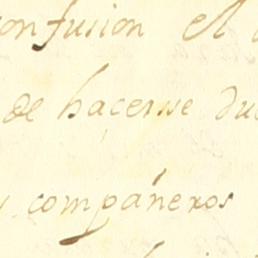 confusion el
de hacerme du
y compañeros